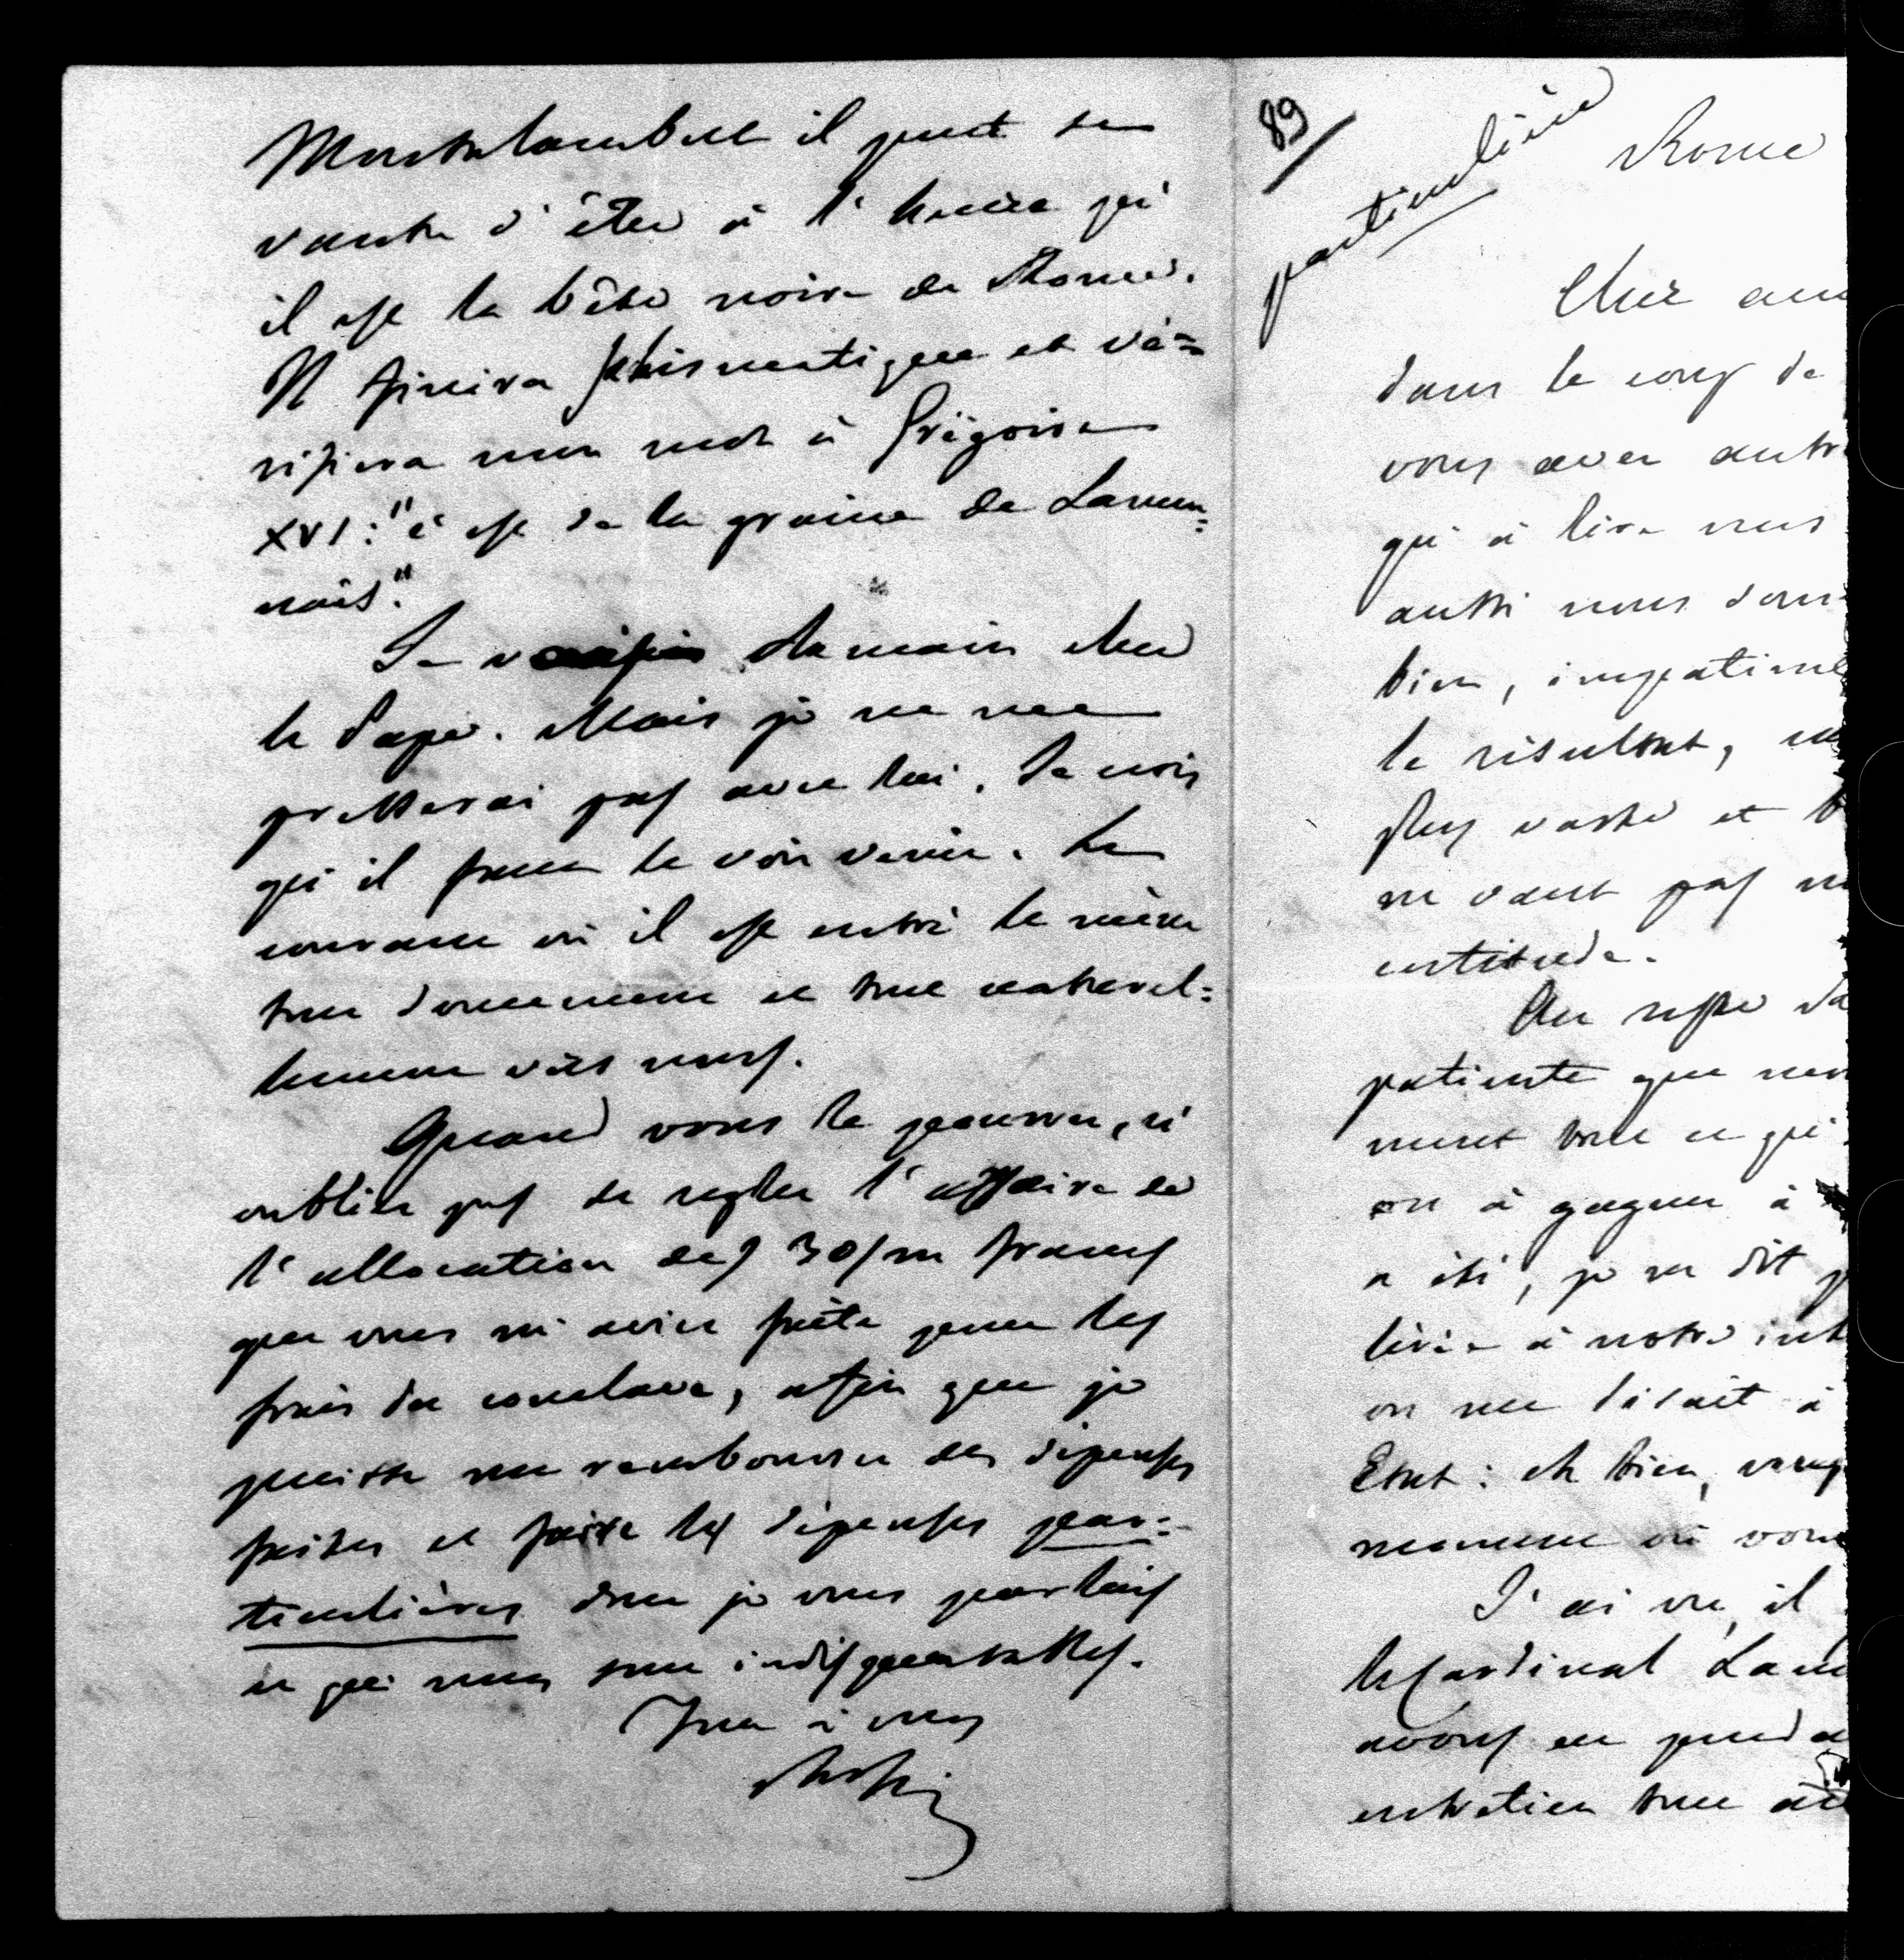 Montalembert il peut se
vanter d'être à l'heure qu'
il est la bête noire de Rome.
Il finira schismatique et vé=
rifiera mon mot à Grégoire
XVI: "c'est de la graine de Lamen=
nais."
Je demain chez
le Pape. Mais je ne me
presserai pas avec lui. Je crois
qu'il faut le voir venir. Le
courant où il est entré le mène
tout doucement et tout naturel=
lement vers nous.
Quand vous le pourrez, n'
oubliez pas de regler l'affaire de
l'allocation des 30/m francs
que vous m'aviez faite pour les
frais du conclave, afin que je
puisse me rembourser des dépenses
faites et faire les dépenses par=
ticulières dont je vous parlais
et qui nous sont indispensables.
Tout à vous
Rossi
89
particulière
Rome
Cher ami
dans le corps de
vous avez autre
qu'à lire nos
aussi nous
bien, impatient
le résultat,
plus vaste et
ne vaut pas
certitude.
Au reste
patiente que
ment tout ce qui
on à gagner à
a été, je ne dit
livré à notre
on me disait à
Etat: eh bien,
moment où vous
J'ai vu, il
le Cardinal
avons eu pendant
entretien tout